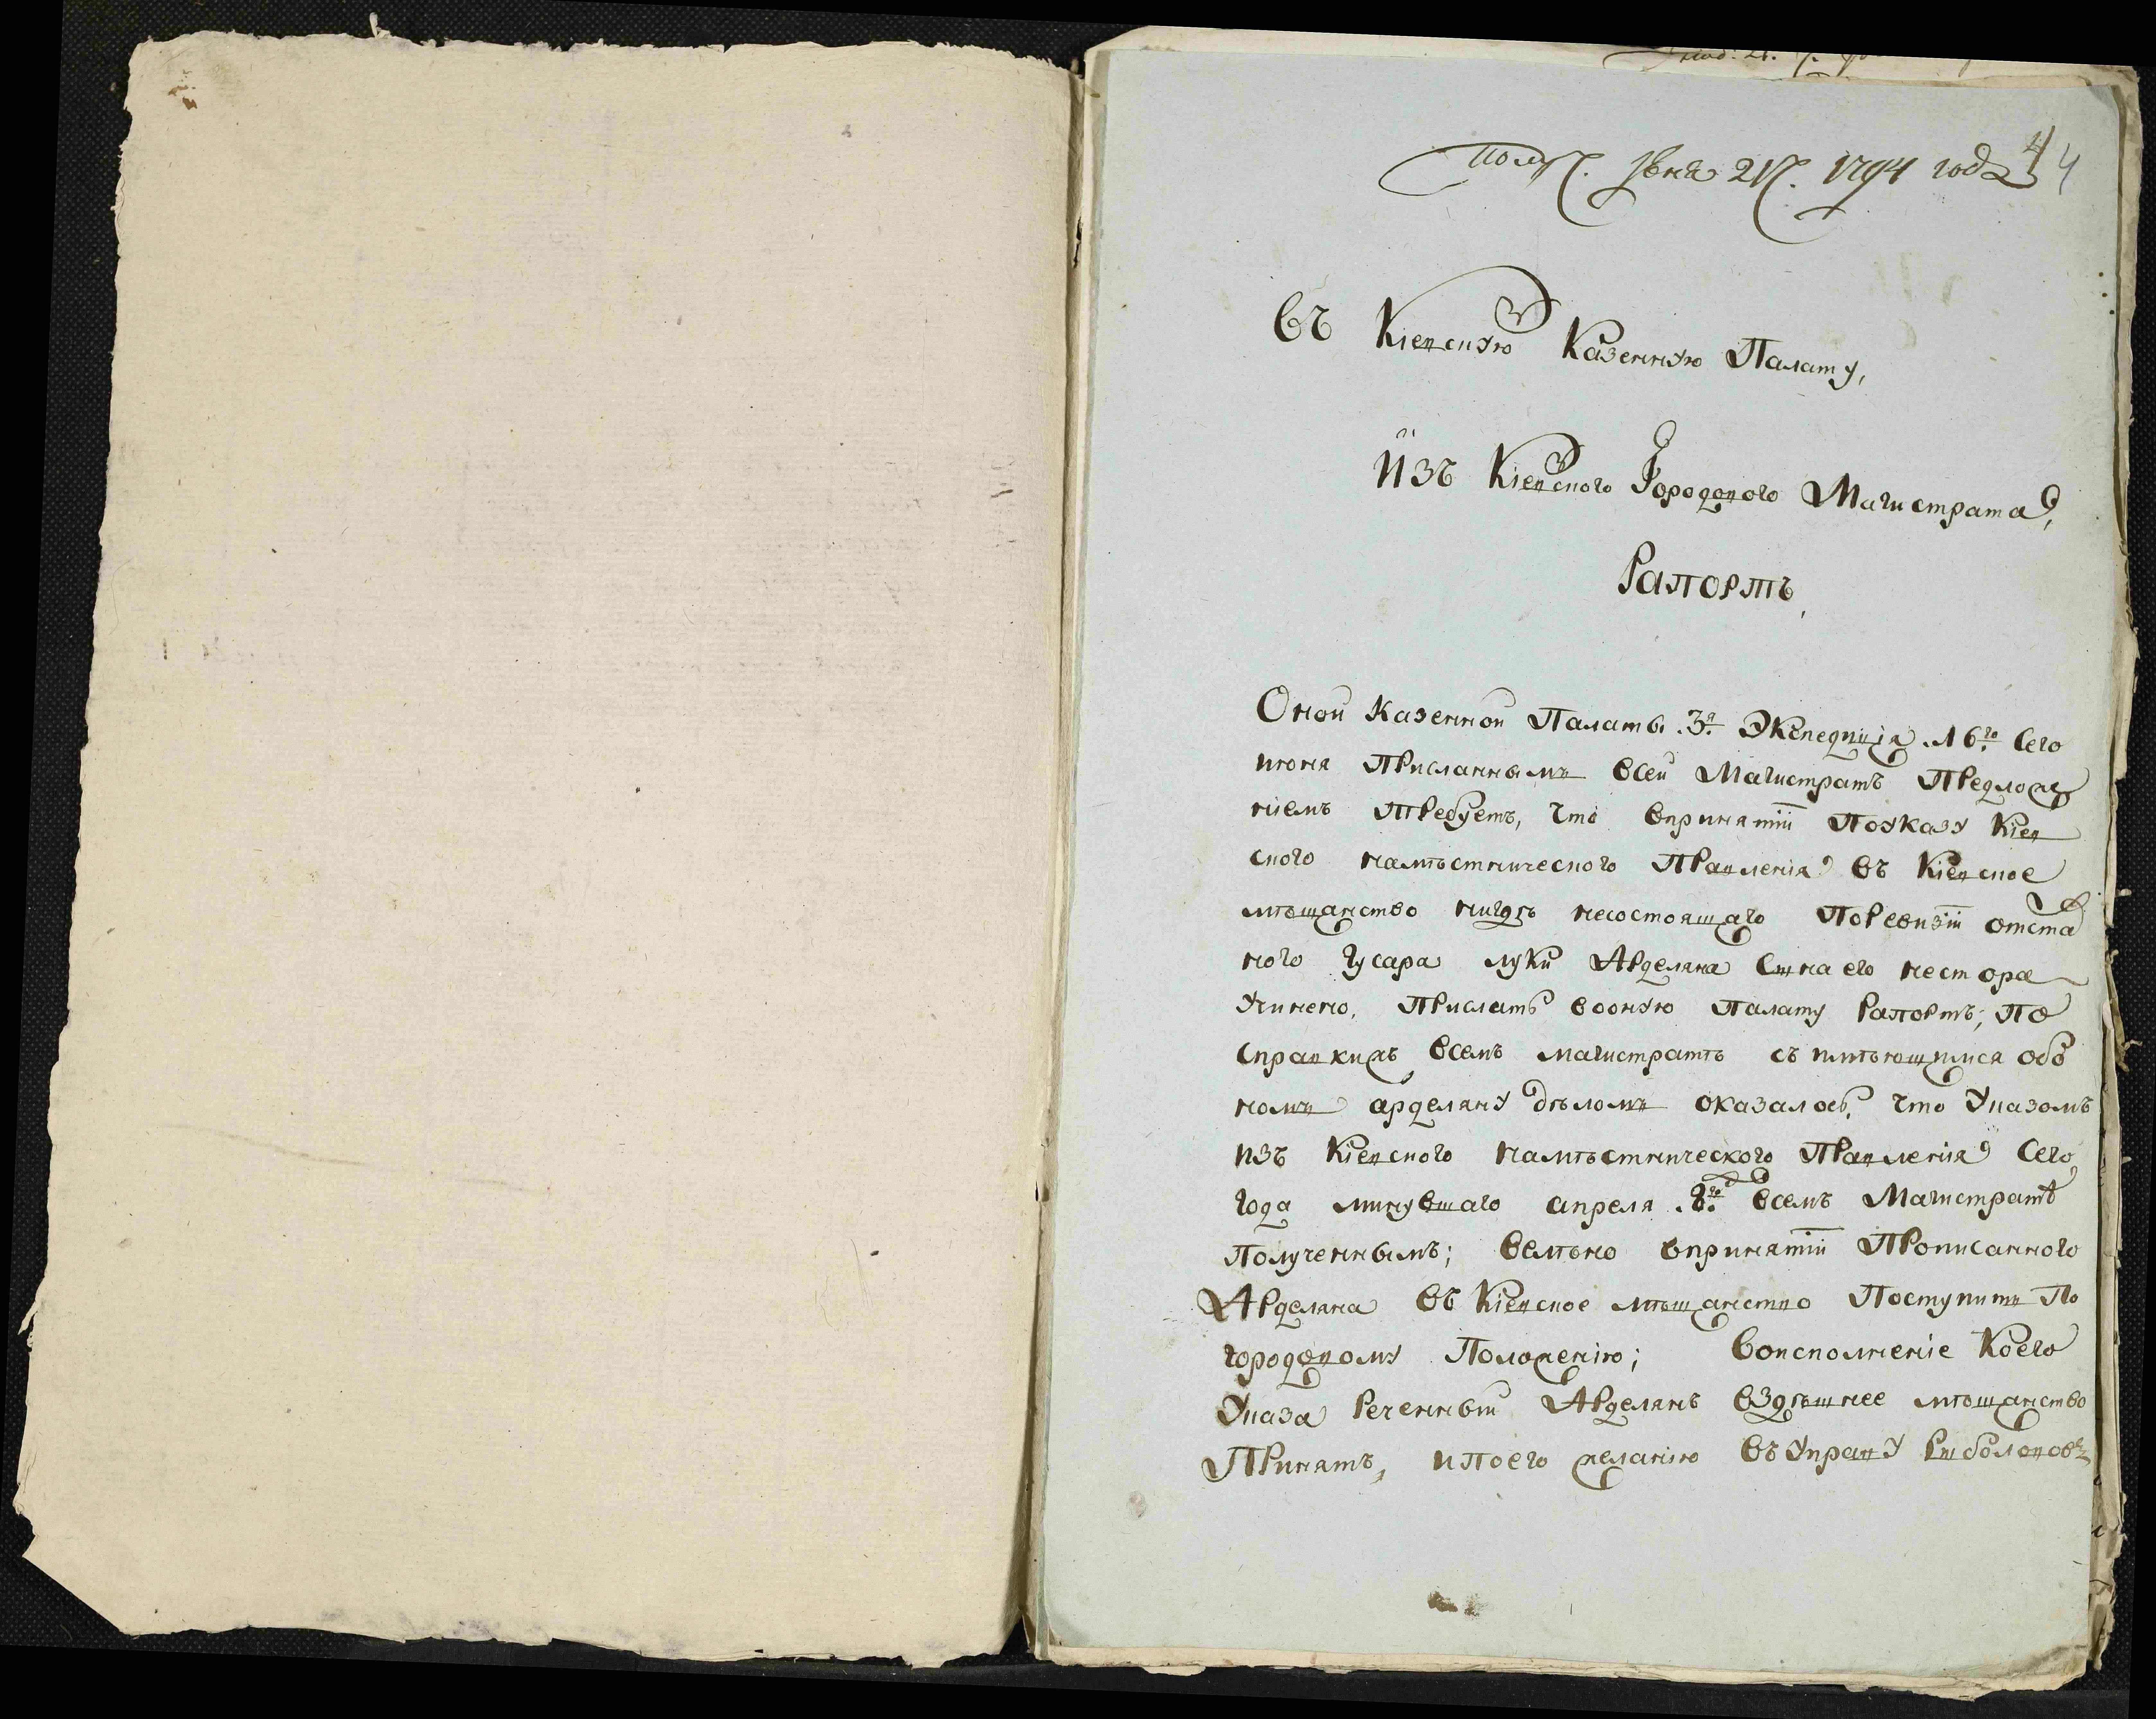 Получ. Іюня 21ч. 1794 года
4 4
Въ Кіевскую Казенную Палату,
Изъ Кіевского Городового Магистрата,
Рапортъ,
Оной Казенной Палаты .3я. Экспедиція .16го. Сего
июня Присланнымъ Всей Магистратъ Предложе
ніемъ Требуетъ, Что Впринятіи Поуказу Кіев
ского намѣстнического Правленія въ Кіевское
мѣщанство нигдѣ несостоящаго Поревизіи отстав
ного гусара луки Арделяна Сына его нестора
Учинено, Прислать вооную Палату Рапортъ; По
Справкихъ Всемъ магистратѣ съ имѣющимися обо
номъ арделяну дѣломъ оказалось, Что Указомъ
изъ Кіевского намѣстнического Правленія Сего
года минувшаго апреля .8го. Всемъ Магистратѣ
Полученнымъ; Велѣно впринятіи Прописанного
Арделяна Въ Кіевское мѣщанство Поступить По
городовому Положенію; Воисполненіе Коего
Указа Реченный Арделянъ Вздѣшнее мѣщанство
Принятъ, ипоего желанію Въ Управу